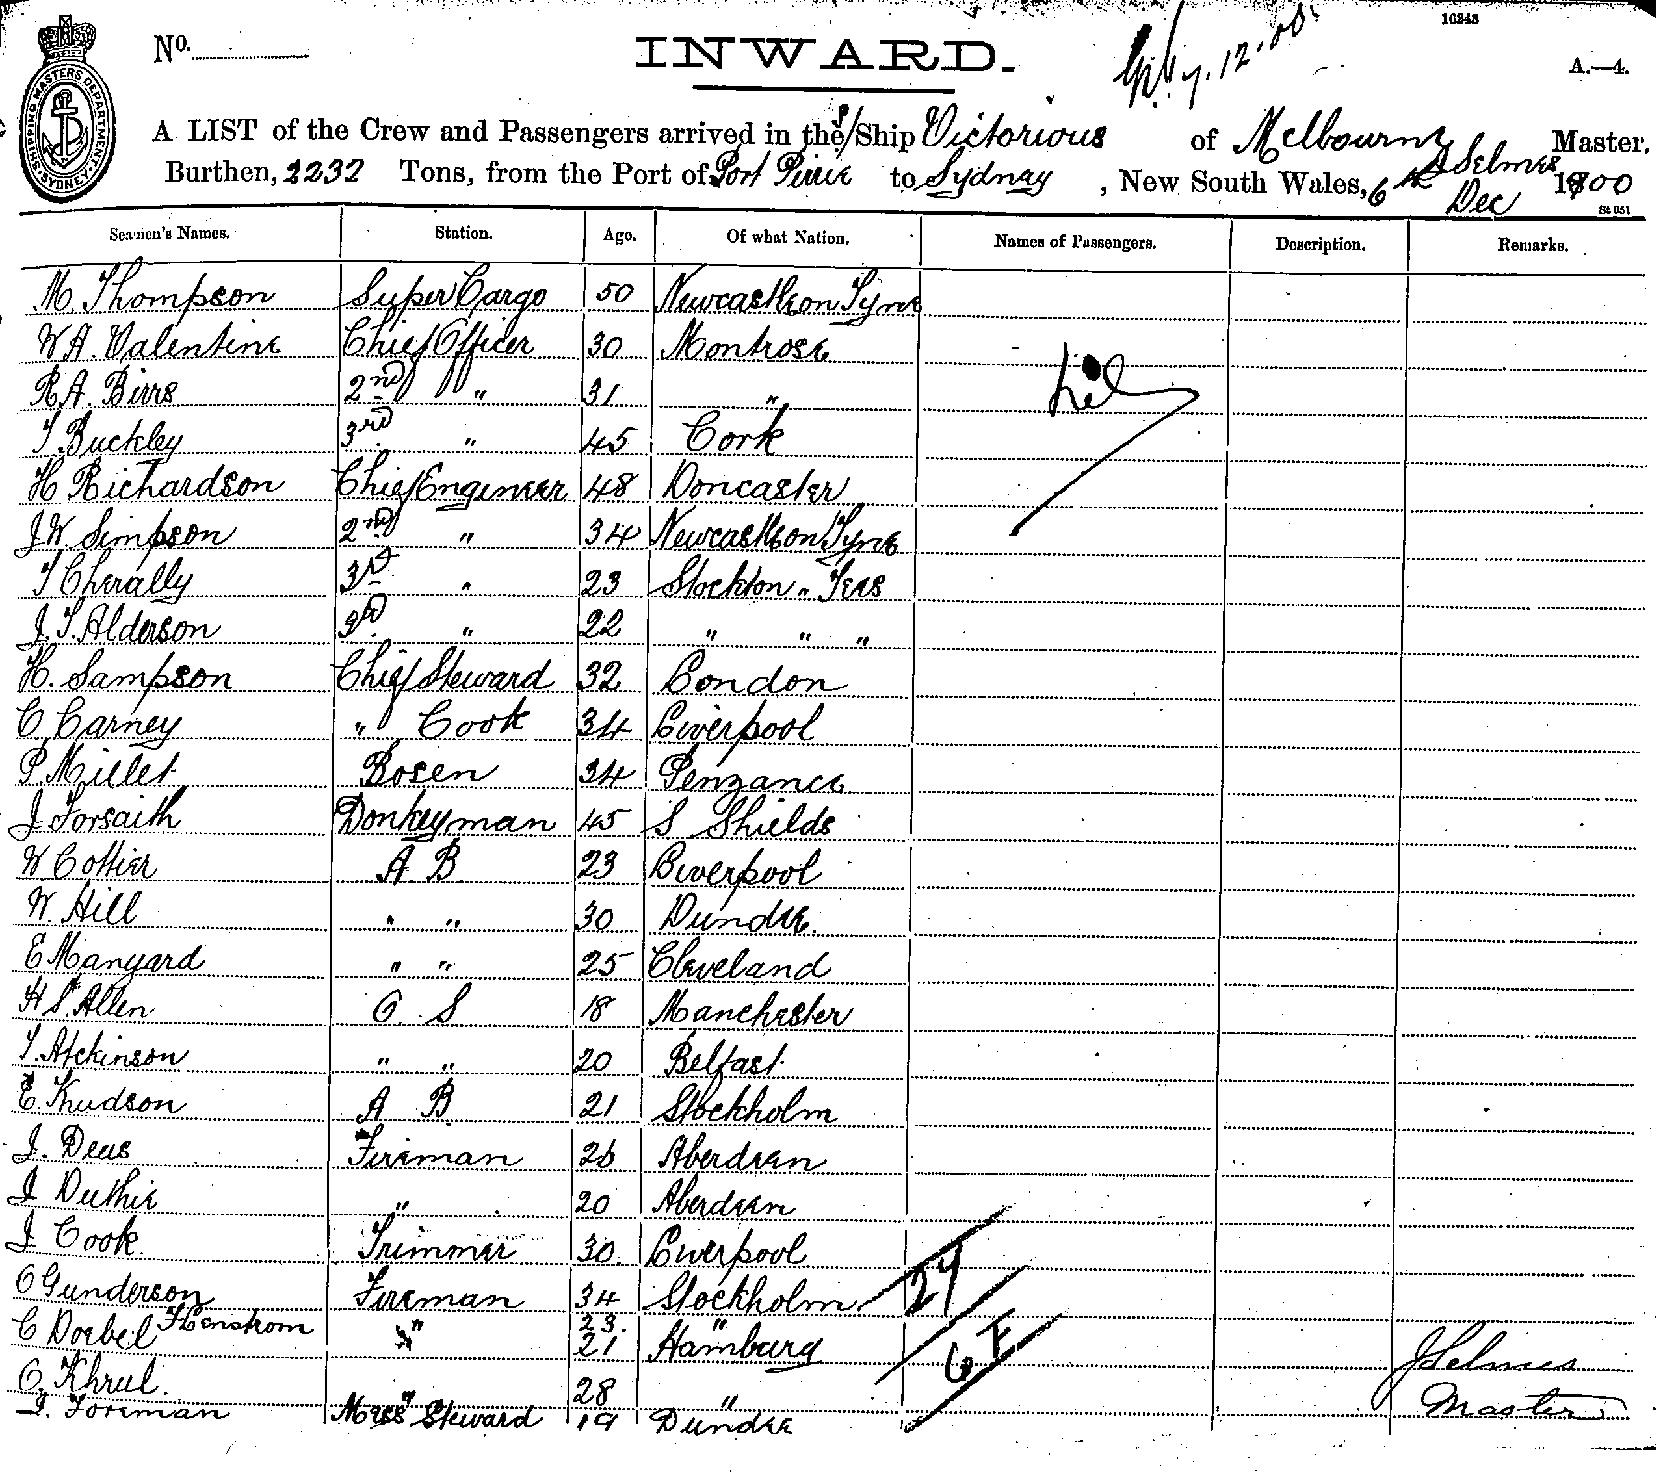 10243
No.
INWARD.
7.12.00
A.—4.
SHIPPING MASTERS DEPARTMENT SYDNEY
A LIST of the Crew and Passengers arrived in the S/Ship Victorious of Melbourne J Selmes Master,
Burthen, 2232 Tons, from the Port of Port Pirie to Sydney, New South Wales, 6th Dec 1900
St 051
Seamen's Names. Station. Age. Of what Nation. Names of Passengers. Description. Remarks.
M. Thompson Super Cargo 50 Newcastle on Tyne
W A. Valentine Chief Officer 30 Montrose
R A. Birrs 2nd " 31 "
Nil
T. Buckley 3rd " 45 Cork
H Richardson Chief Engineer 48 Doncaster
J W. Simpson 2nd " 34 Newcastle on Tyne
T Cherally 3rd " 23 Stockton " Tees
J. T. Alderson 3rd " 22 " " "
H. Sampson Chief Steward 32 London
C Carney " Cook 34 Liverpool
P. Millet Bosen 34 Penzance
J Forsaith Donkeyman 45 S Shields
W Cottier A B 23 Liverpool
W. Hill " " 30 Dundee
E Manyard " " 25 Cleveland
H S Allen O. S 18 Manchester
T. Atckinson " " 20 Belfast
E Knudson A B 21 Stockholm
J. Deas Fireman 26 Aberdeen
J Duthie " 20 Aberdeen
J Cook Trimmer 30 Liverpool
O Gunderson Fireman 34 Stockholm
27
Henstrom 23 "
C Doebel " 21 Hamburg
6 F
J Selmes
O. Khrul. " 28 "
Master
J. Foreman Mess Steward 19 Dundee